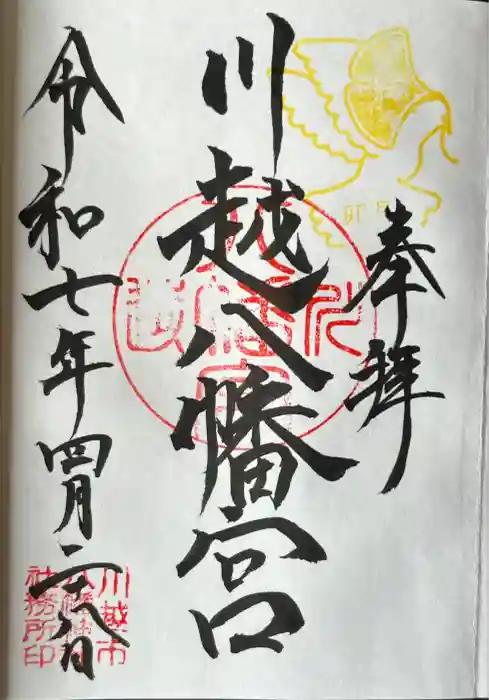 奉拝
川越八幡宮
令和七年四月二十八日
川越市
社務所印